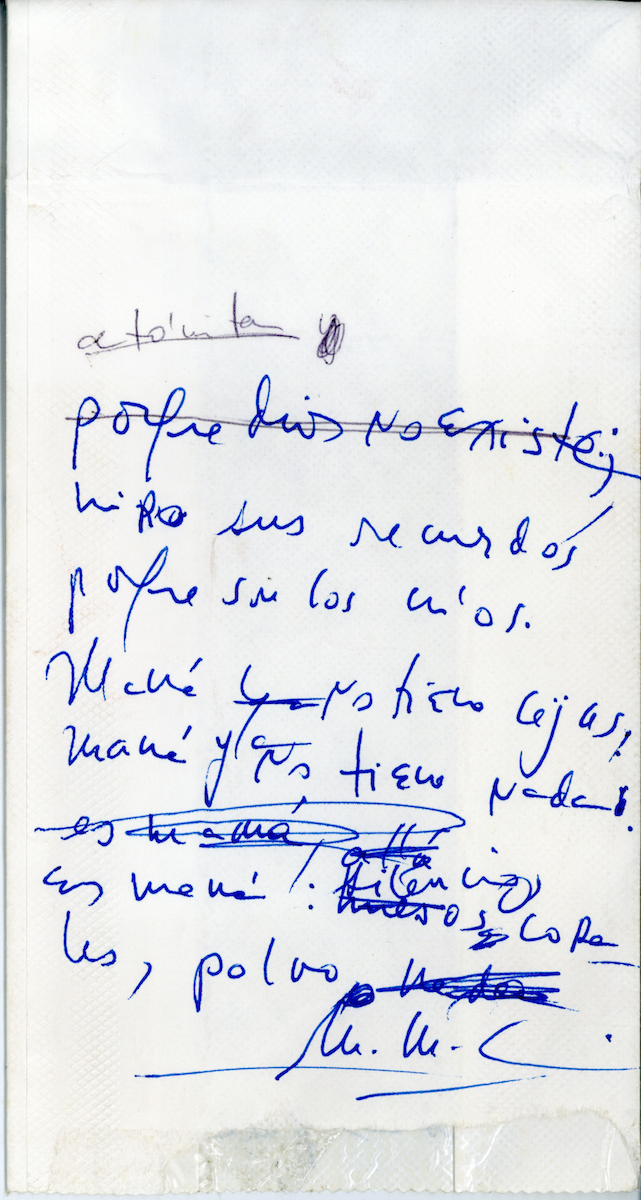 atónita y
porque dios no existe;
miro sus recuerdos
porque son los míos.
Mamá no tiene cejas,
mamá ya no tiene nada:
es mamá,
es mamá: silencio,
huesos, cora
les, polvo
M. M. C.